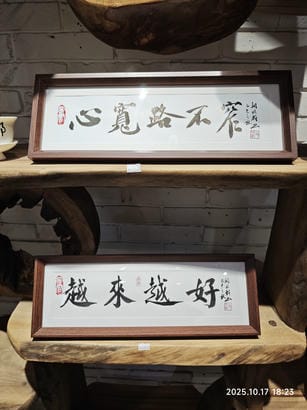 心寬路不窄
越來越好
2025.10.17 18:23